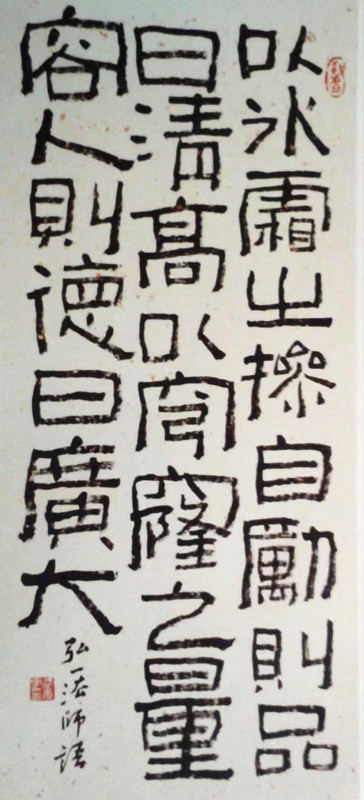 以冰霜之操自勵則品
日清高以穹窿之量
容人則德日廣大
弘一法師語